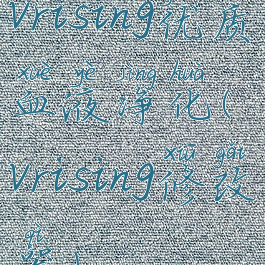 vrising优质
xuè yè jìng huà
血液净化(
xiū gǎi
vrising修改
qì
器)